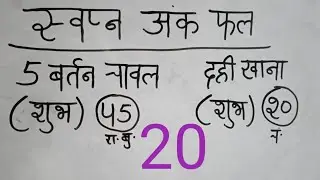 स्वप्न अंक फल
5 बर्तन चावल दही खाना
(शुभ) 45 (शुभ) २०
रा. बु.
20